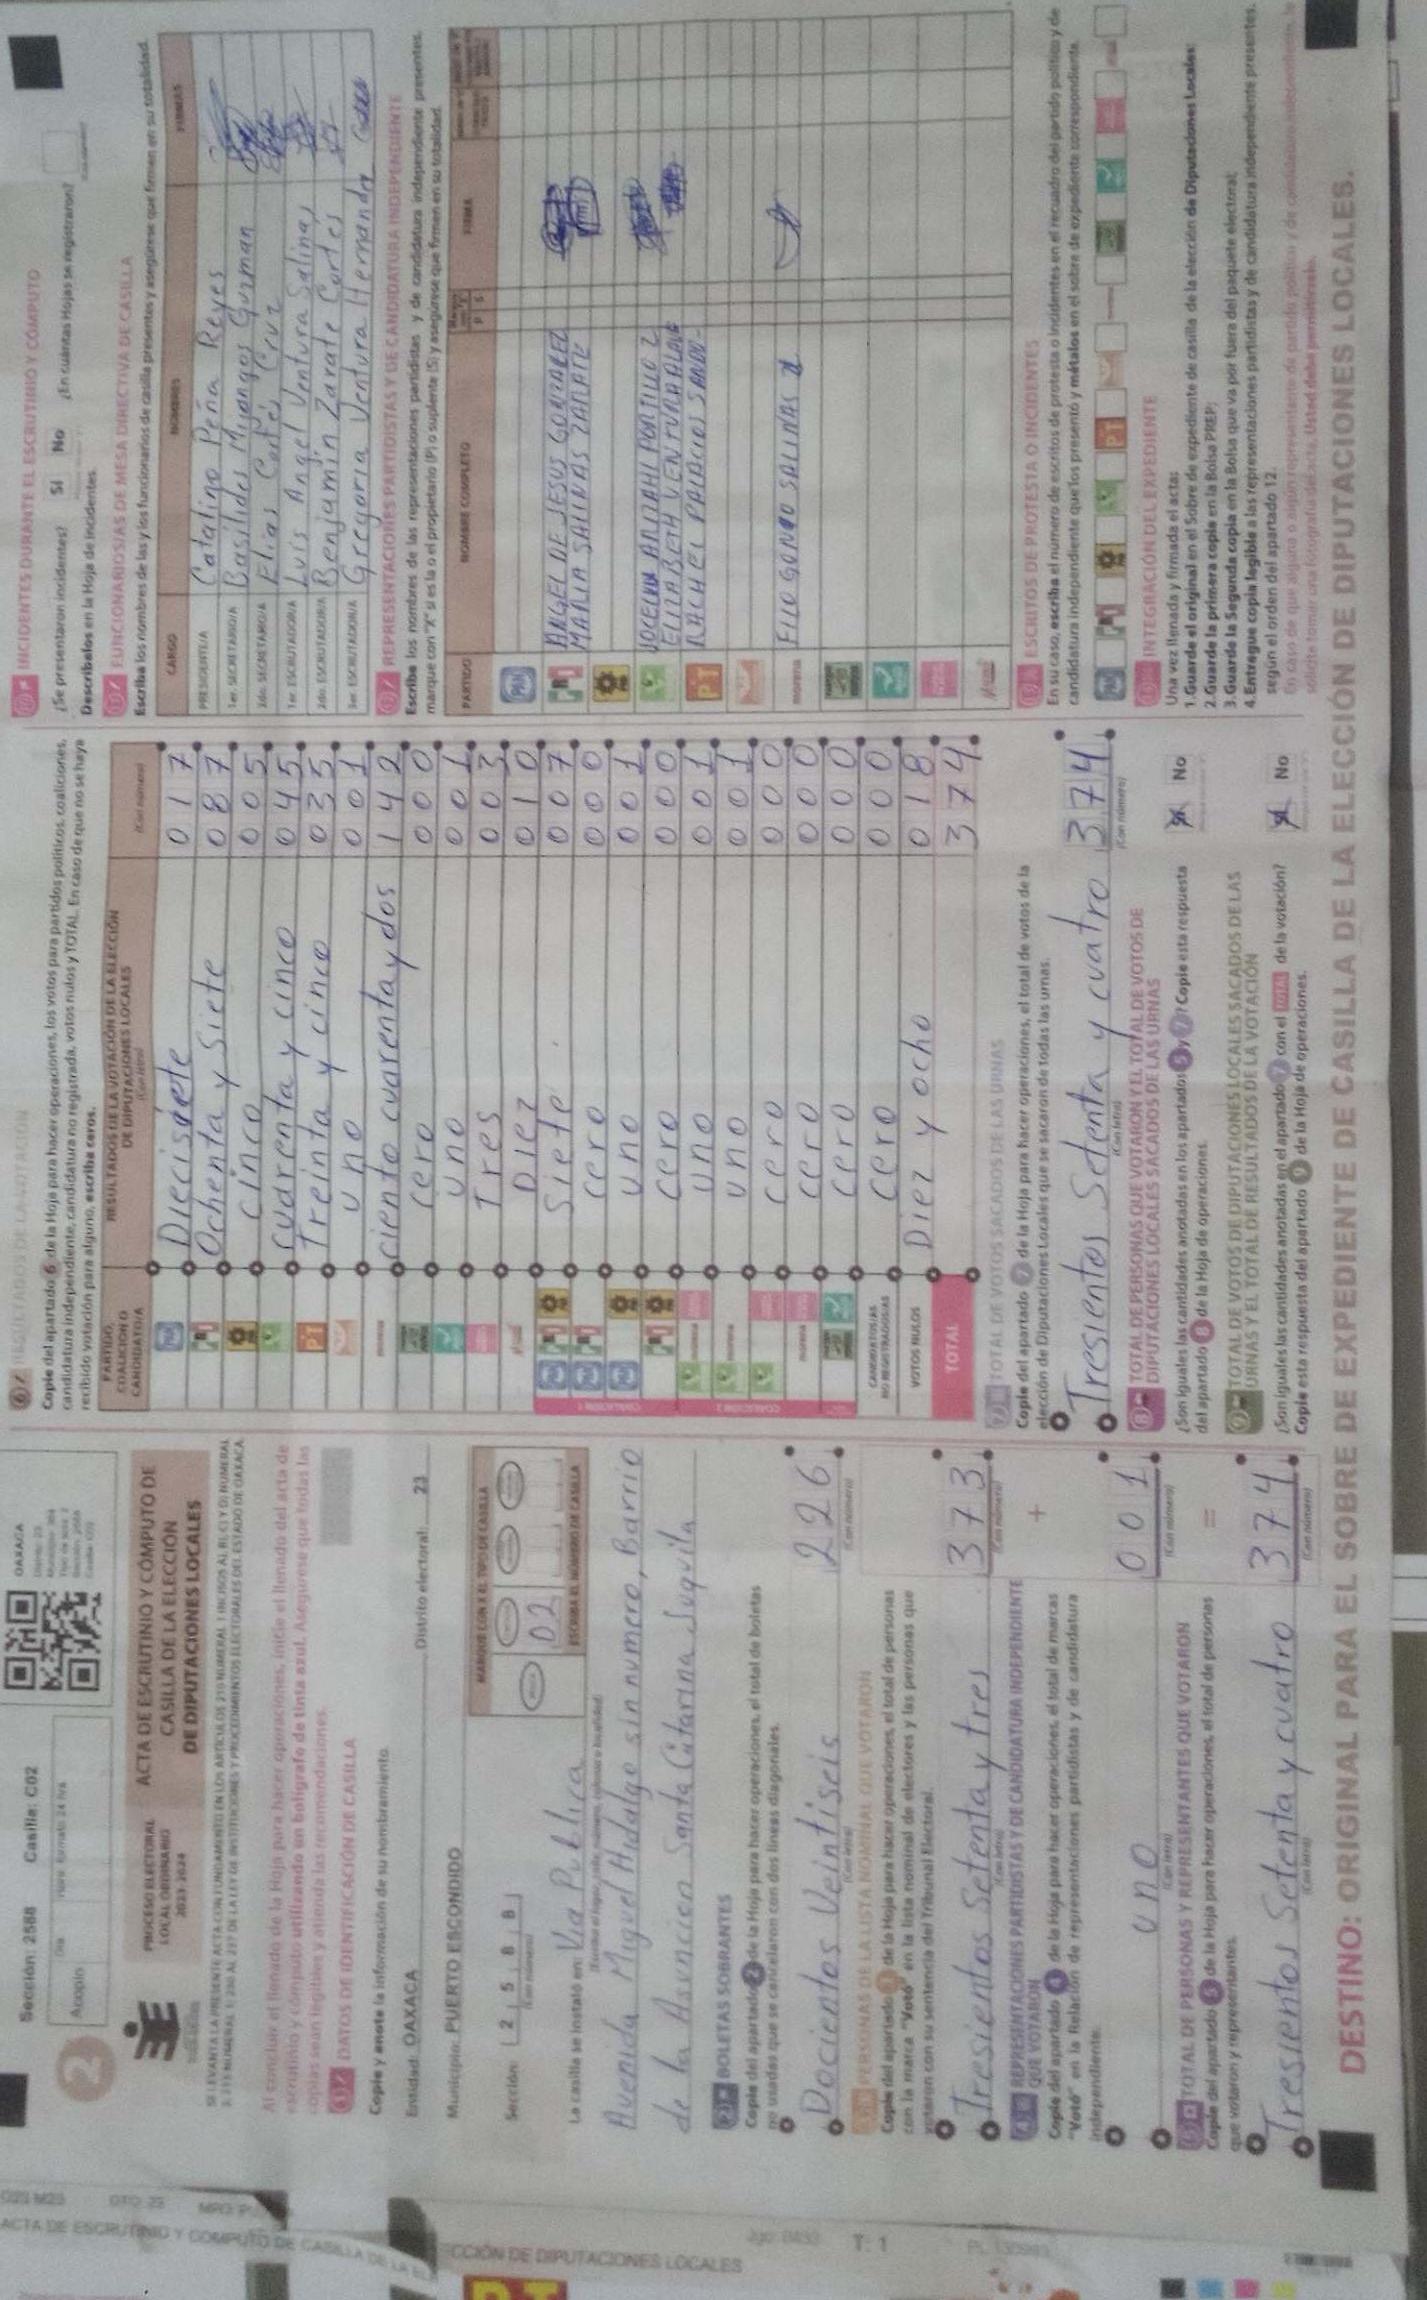 Sección: 2588 Casilla: C02
OAXACA
2
Acopio
Día
Hora: Formato 24 hrs
PROCESO ELECTORAL
LOCAL ORDINARIO
2023-2024
ACTA DE ESCRUTINIO Y CÓMPUTO DE
CASILLA DE LA ELECCIÓN
DE DIPUTACIONES LOCALES
Al concluir el llenado de la Hoja para hacer operaciones, inicie el llenado del acta de
escrutinio y cómputo utilizando un bolígrafo de tinta azul. Asegúrese que todas las
copias sean legibles y atienda las recomendaciones.
1 DATOS DE IDENTIFICACIÓN DE CASILLA
Copie y anote la información de su nombramiento.
Entidad: OAXACA Distrito electoral: 23
Municipio: PUERTO ESCONDIDO
Sección: 2 5 8 8
(Con número)
MARQUE CON X EL TIPO DE CASILLA
02
ESCRIBA EL NÚMERO DE CASILLA
La casilla se instaló en: Via Publica
Avenida Miguel Hidalgo sin numero, Barrio
de la Asuncion Santa Catarina Juquila
2 BOLETAS SOBRANTES
Copie del apartado 2 de la Hoja para hacer operaciones, el total de boletas
no usadas que se cancelaron con dos líneas diagonales.
Docientos Veintiseis 226
(Con letra) (Con número)
3 PERSONAS DE LA LISTA NOMINAL QUE VOTARON
Copie del apartado 3 de la Hoja para hacer operaciones, el total de personas
con la marca "Votó" en la lista nominal de electores y las personas que
votaron con su sentencia del Tribunal Electoral.
Tresientos Setenta y tres 373
(Con letra) (Con número)
+
4 REPRESENTACIONES PARTIDISTAS Y DE CANDIDATURA INDEPENDIENTE
QUE VOTARON
Copie del apartado 4 de la Hoja para hacer operaciones, el total de marcas
"Votó" en la Relación de representaciones partidistas y de candidatura
independiente.
uno 001
(Con letra) (Con número)
=
5 TOTAL DE PERSONAS Y REPRESENTANTES QUE VOTARON
Copie del apartado 5 de la Hoja para hacer operaciones, el total de personas
que votaron y representantes.
Tresientos Setenta y cuatro 374
(Con letra) (Con número)
6 RESULTADOS DE LA VOTACIÓN
Copie del apartado 6 de la Hoja para hacer operaciones, los votos para partidos políticos, coaliciones,
candidatura independiente, candidatura no registrada, votos nulos y TOTAL. En caso de que no se haya
recibido votación para alguno, escriba ceros.
PARTIDO, COALICIÓN O CANDIDATO/A
RESULTADOS DE LA VOTACIÓN DE LA ELECCIÓN
DE DIPUTACIONES LOCALES
(Con letra) (Con número)
PAN Diecisiete 017
PRI Ochenta y Siete 087
PRD cinco 005
cuarenta y cinco 045
PT Treinta y cinco 035
uno 001
morena ciento cuarenta y dos 142
cero 000
uno 001
Tres 003
Diez 010
Siete 007
cero 000
uno 001
cero 000
uno 001
uno 001
cero 000
cero 000
cero 000
CANDIDATOS/AS NO REGISTRADOS/AS cero 000
VOTOS NULOS Diez y ocho 018
TOTAL 374
7 TOTAL DE VOTOS SACADOS DE LAS URNAS
Copie del apartado 7 de la Hoja para hacer operaciones, el total de votos de la
elección de Diputaciones Locales que se sacaron de todas las urnas.
Tresientos Setenta y cuatro 374
(Con letra) (Con número)
8 TOTAL DE PERSONAS QUE VOTARON Y EL TOTAL DE VOTOS DE
DIPUTACIONES LOCALES SACADOS DE LAS URNAS
¿Son iguales las cantidades anotadas en los apartados 5 y 7? Copie esta respuesta
del apartado 8 de la Hoja de operaciones.
No
9 TOTAL DE VOTOS DE DIPUTACIONES LOCALES SACADOS DE LAS
URNAS Y EL TOTAL DE RESULTADOS DE LA VOTACIÓN
¿Son iguales las cantidades anotadas en el apartado 7 con el TOTAL de la votación?
Copie esta respuesta del apartado 9 de la Hoja de operaciones.
No
10 INCIDENTES DURANTE EL ESCRUTINIO Y CÓMPUTO
¿Se presentaron incidentes? Sí No ¿En cuántas Hojas se registraron?
Descríbalos en la Hoja de incidentes.
11 FUNCIONARIOS/AS DE MESA DIRECTIVA DE CASILLA
Escriba los nombres de las y los funcionarios de casilla presentes y asegúrese que firmen en su totalidad.
CARGO NOMBRES FIRMAS
PRESIDENTE/A Catalino Peña Reyes
1er. SECRETARIO/A Basilides Mijangos Guzman
2do. SECRETARIO/A Elias Cortés Cruz
1er. ESCRUTADOR/A Luis Angel Ventura Salinas
2do. ESCRUTADOR/A Benjamin Zarate Cortes
3er. ESCRUTADOR/A Gregoria Ventura Hernandz
12 REPRESENTACIONES PARTIDISTAS Y DE CANDIDATURA INDEPENDIENTE
Escriba los nombres de las representaciones partidistas y de candidatura independiente presentes,
marque con "X" si es la o el propietario (P) o suplente (S) y asegúrese que firmen en su totalidad.
PARTIDO NOMBRE COMPLETO FIRMA
ANGEL DE JESUS GONZALEZ
MARIA SALINAS ZARATE
ELIZABETH VENTURA
RACHEL PALACIOS
SALINAS
13 ESCRITOS DE PROTESTA O INCIDENTES
En su caso, escriba el número de escritos de protesta o incidentes en el recuadro del partido político y de
candidatura independiente que los presentó y métalos en el sobre de expediente correspondiente.
14 INTEGRACIÓN DEL EXPEDIENTE
Una vez llenada y firmada el acta:
1. Guarde el original en el Sobre de expediente de casilla de la elección de Diputaciones Locales;
2. Guarde la primera copia en la Bolsa PREP;
3. Guarde la Segunda copia en la Bolsa que va por fuera del paquete electoral;
4. Entregue copia legible a las representaciones partidistas y de candidatura independiente presentes,
según el orden del apartado 12.
En caso de que alguna o algún representante de partido político y de candidatura independiente, le
solicite tomar una fotografía del acta. Usted debe permitírselo.
DESTINO: ORIGINAL PARA EL SOBRE DE EXPEDIENTE DE CASILLA DE LA ELECCIÓN DE DIPUTACIONES LOCALES.
T: 1